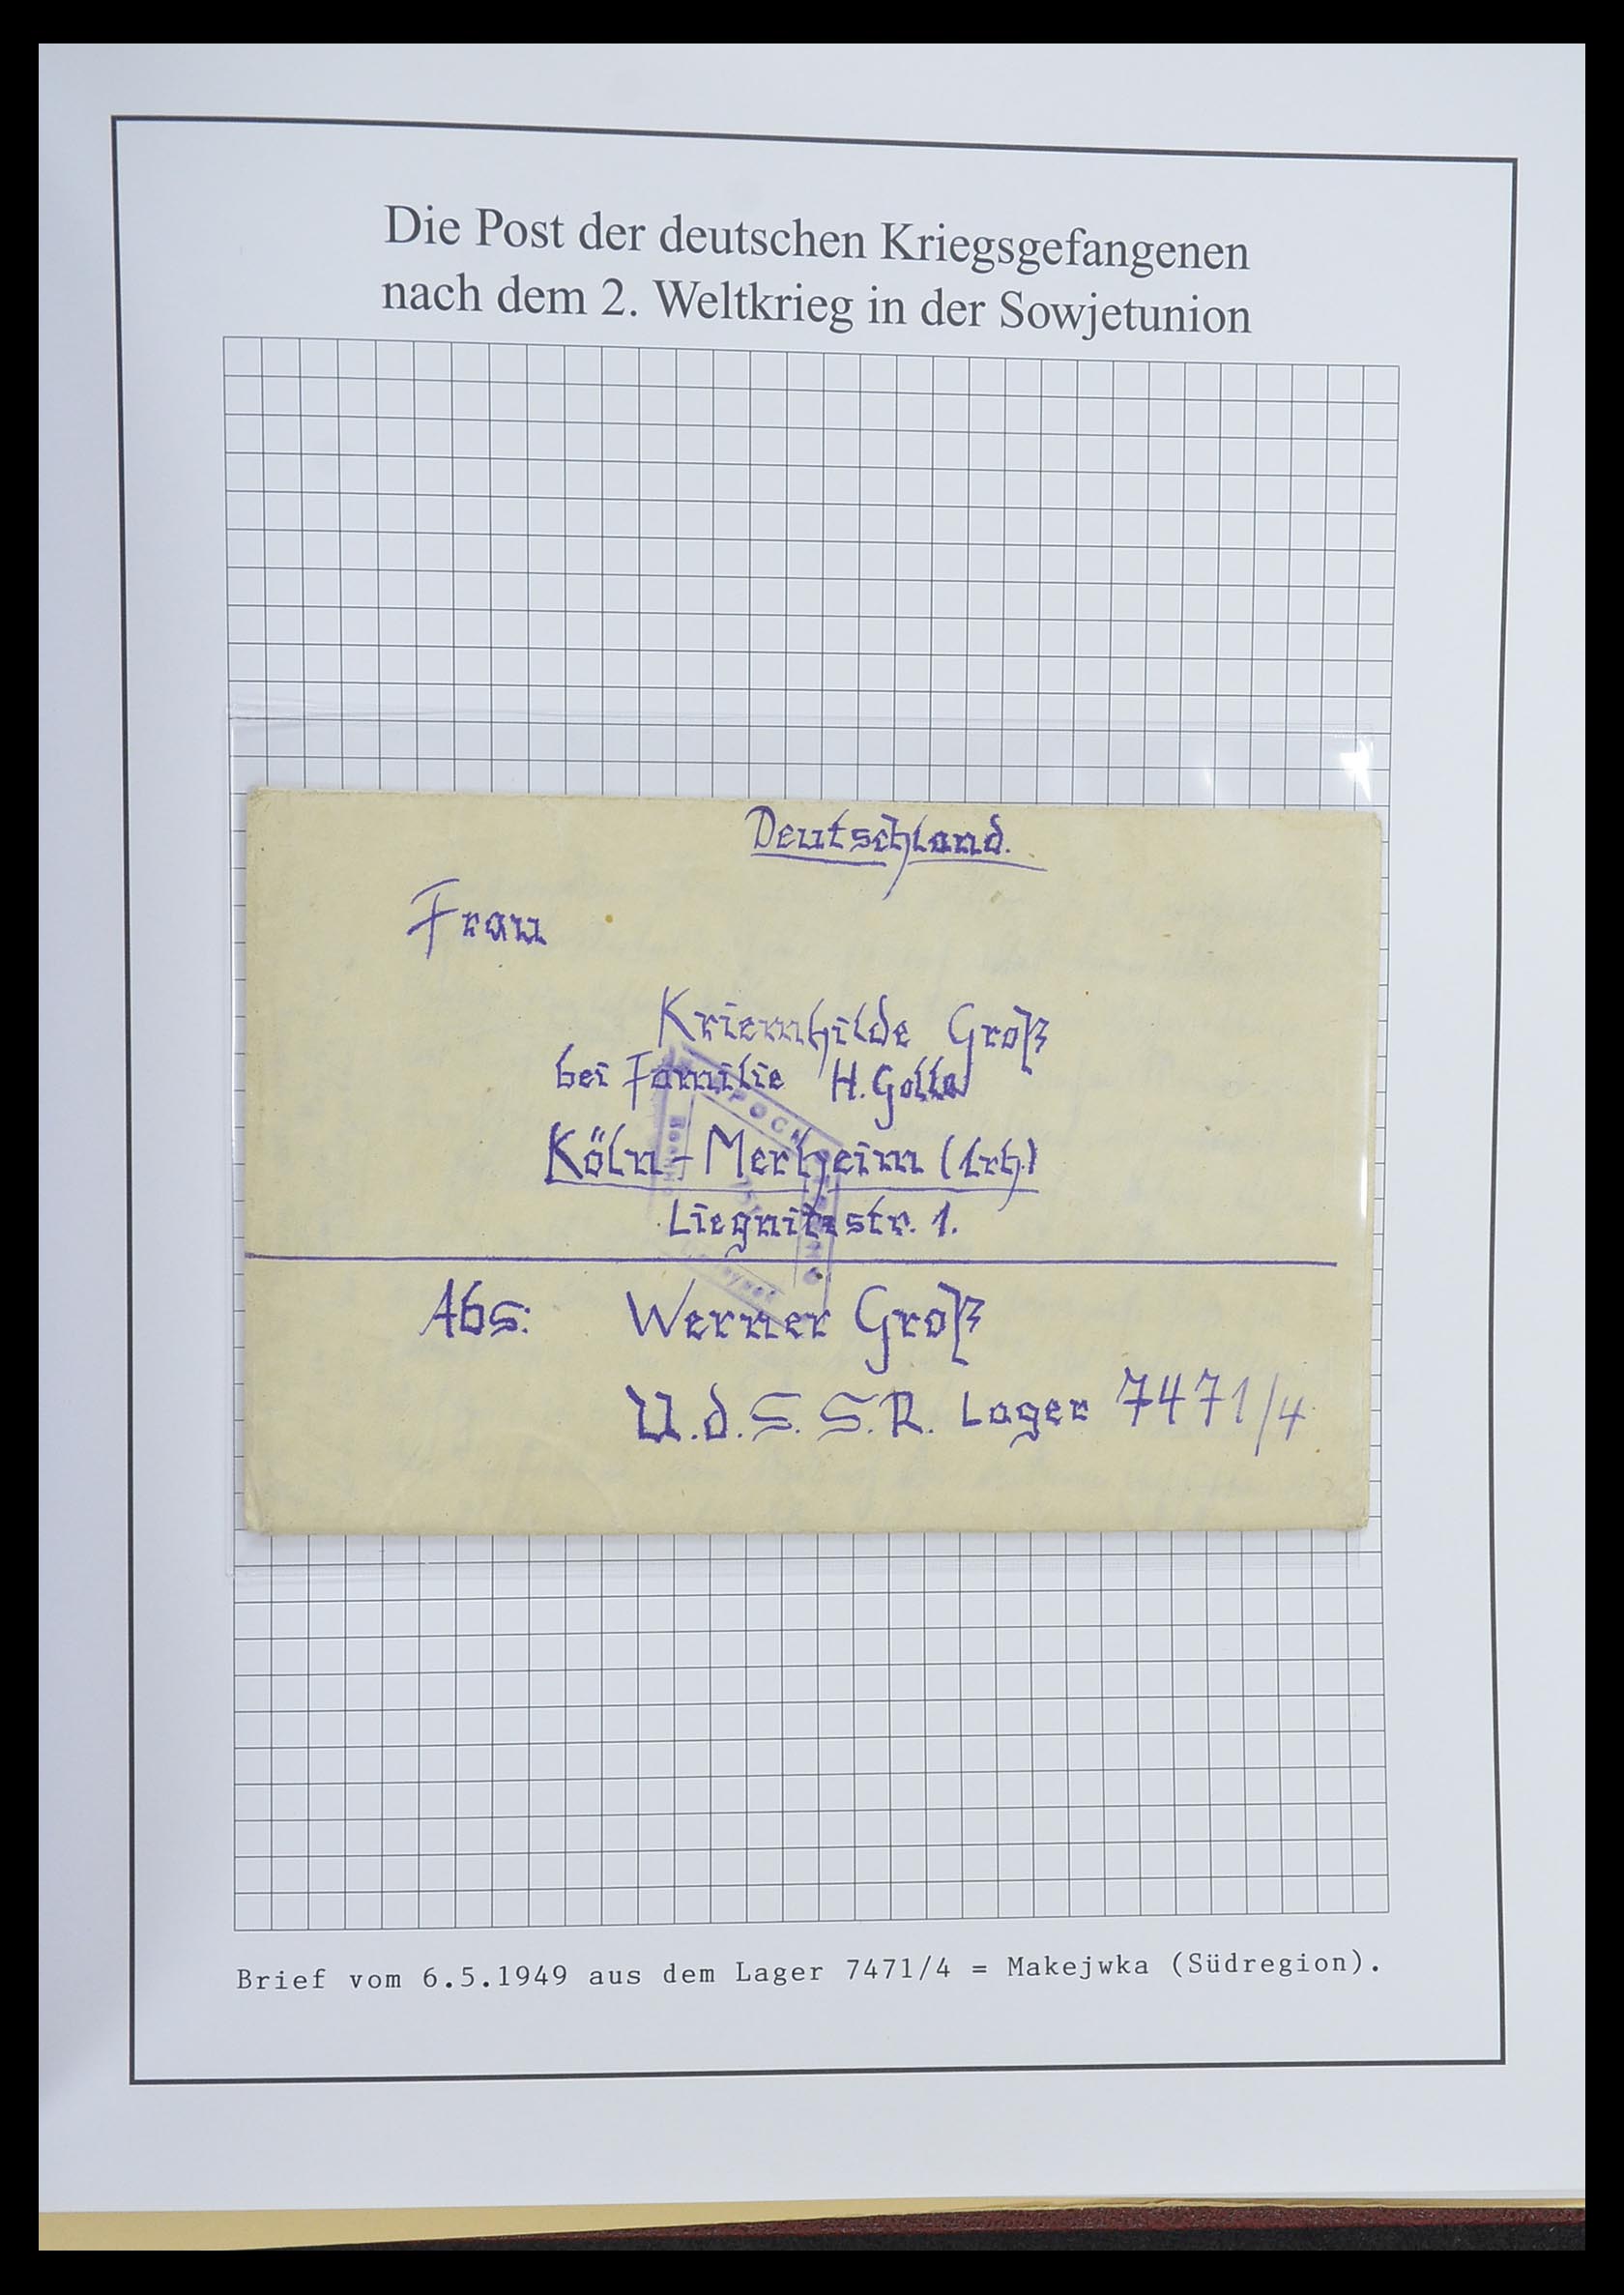 Die Post der deutschen Kriegsgefangenen
nach dem 2. Weltkrieg in der Sowjetunion
Deutschland.
Frau
Kriemhilde Groß
bei Familie H. Golla
Köln-Merheim (lrh.)
Liegnitzstr. 1.
Abs: Werner Groß
U.d.S.S.R. Lager 7471/4
Brief vom 6.5.1949 aus dem Lager 7471/4 = Makejwka (Südregion).